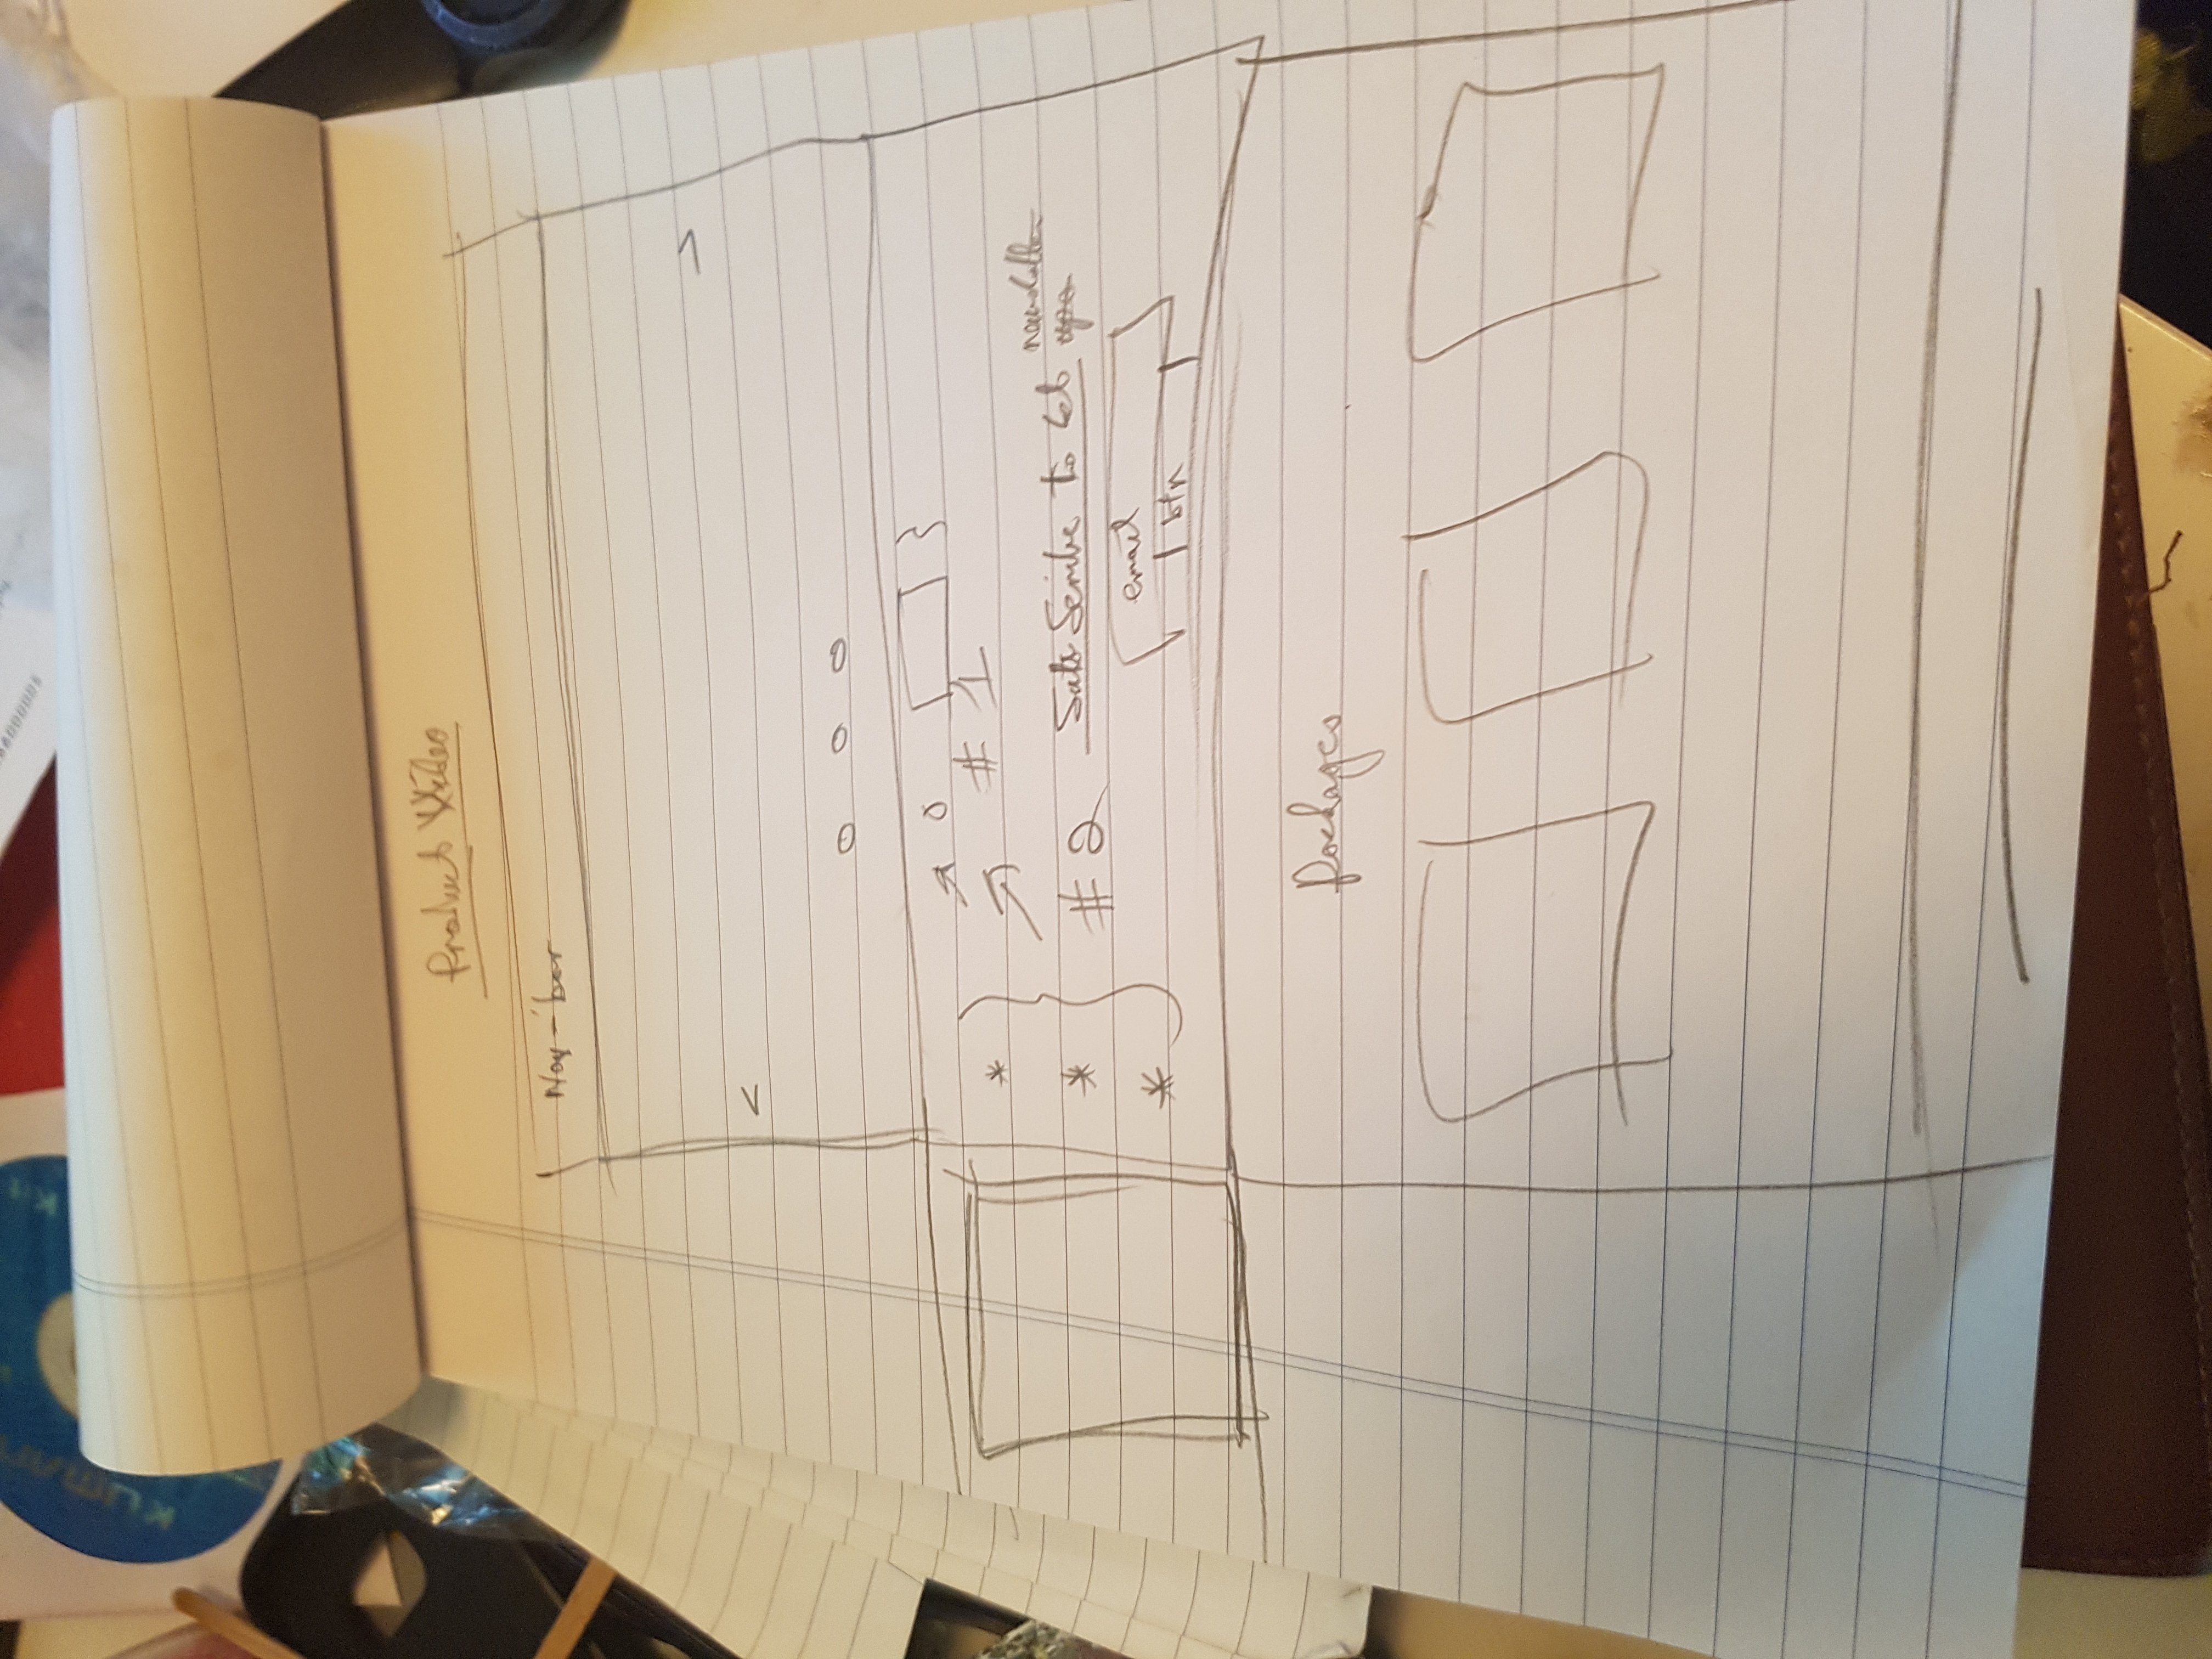 KUMAR
Kit
Product Video
Nav-bar
<
>
# 1
*
*
*
# 2 Subscribe to Get newsletter
email
btn
Packages